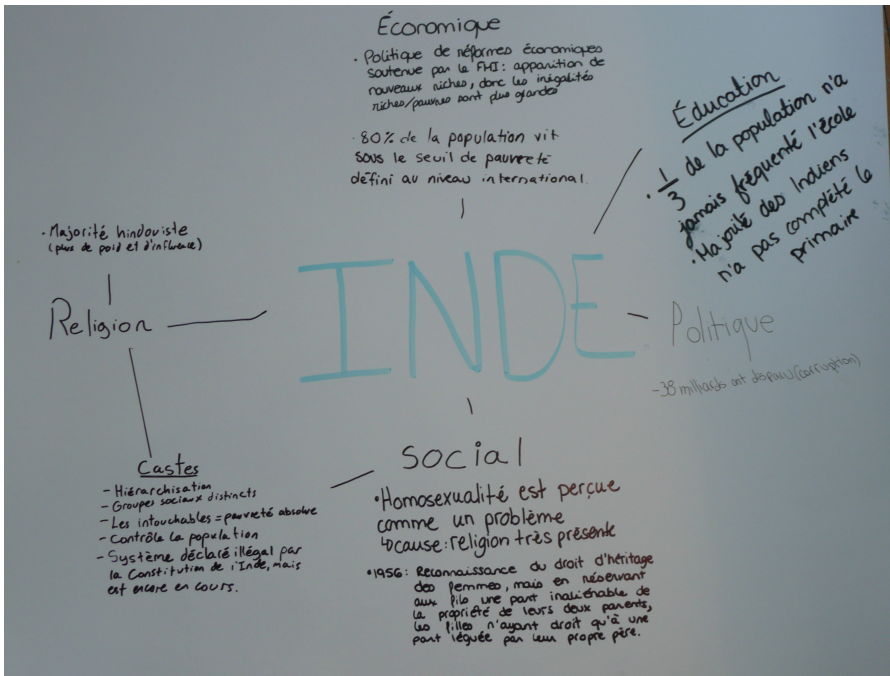 Économique
• Politique de réformes économiques
soutenue par le FMI: apparition de
nouveaux riches, donc les inégalités
riches/pauvres sont plus grandes
• 80% de la population vit
sous le seuil de pauvreté
défini au niveau international.
Éducation
• 1/3 de la population n'a
jamais fréquenté l'école
• Majorité des Indiens
n'a pas complété le
primaire
• Majorité hindouiste
(plus de poid et d'influence)
Religion
INDE
Politique
-38 milliards ont disparu (corruption)
Castes
- Hiérarchisation
- Groupes sociaux distincts
- Les intouchables = pauvreté absolue
- Contrôle la population
- Système déclaré illégal par
la Constitution de l'Inde, mais
est encore en cours.
Social
• Homosexualité est perçue
comme un problème
↳ cause: religion très présente
• 1956: Reconnaissance du droit d'héritage
des femmes, mais en réservant
aux fils une part inaliénable de
la propriété de leurs deux parents,
les filles n'ayant droit qu'à une
part léguée par leur propre père.